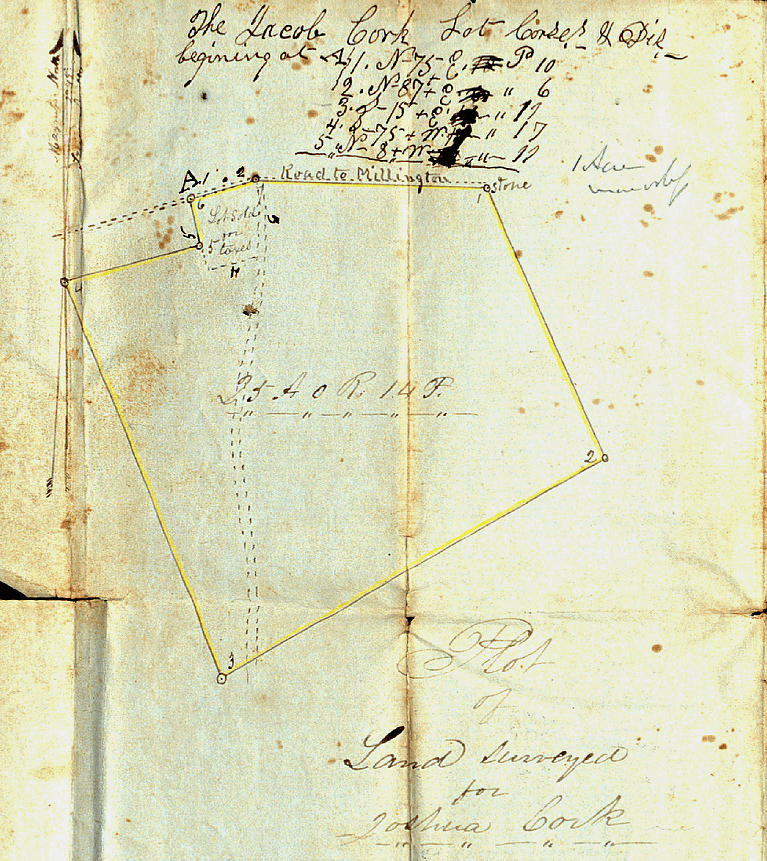 The Jacob Cork Lot Corses & Dis
begining at A
1. N 75 E. P 10
2. N 87 + E " 6
3. S 15 + E " 19
4. S 75 + W " 17
5 " N 8 + W " 19
1 Acre
A 1. 2
Road to Millington
1 Stone
6
Lot Sold
for
taxes
3
5
5
4
4
25 A 0 R. 14 P.
2
3
Plot
of
Land surveyed
for
Joshua Cork